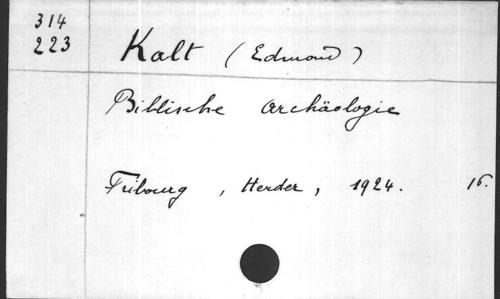 314
223
Kalt (Edmond)
Biblische Archäologie
Fribourg, Herder, 1924. 16.